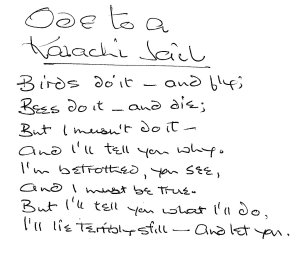 Ode to a
Karachi Jail
Birds do it – and fly;
Bees do it – and die;
But I musn't do it –
And I'll tell you why.
I'm betrothed, you see,
And I must be true.
But I'll tell you what I'll do,
I'll lie terribly still – And let you.